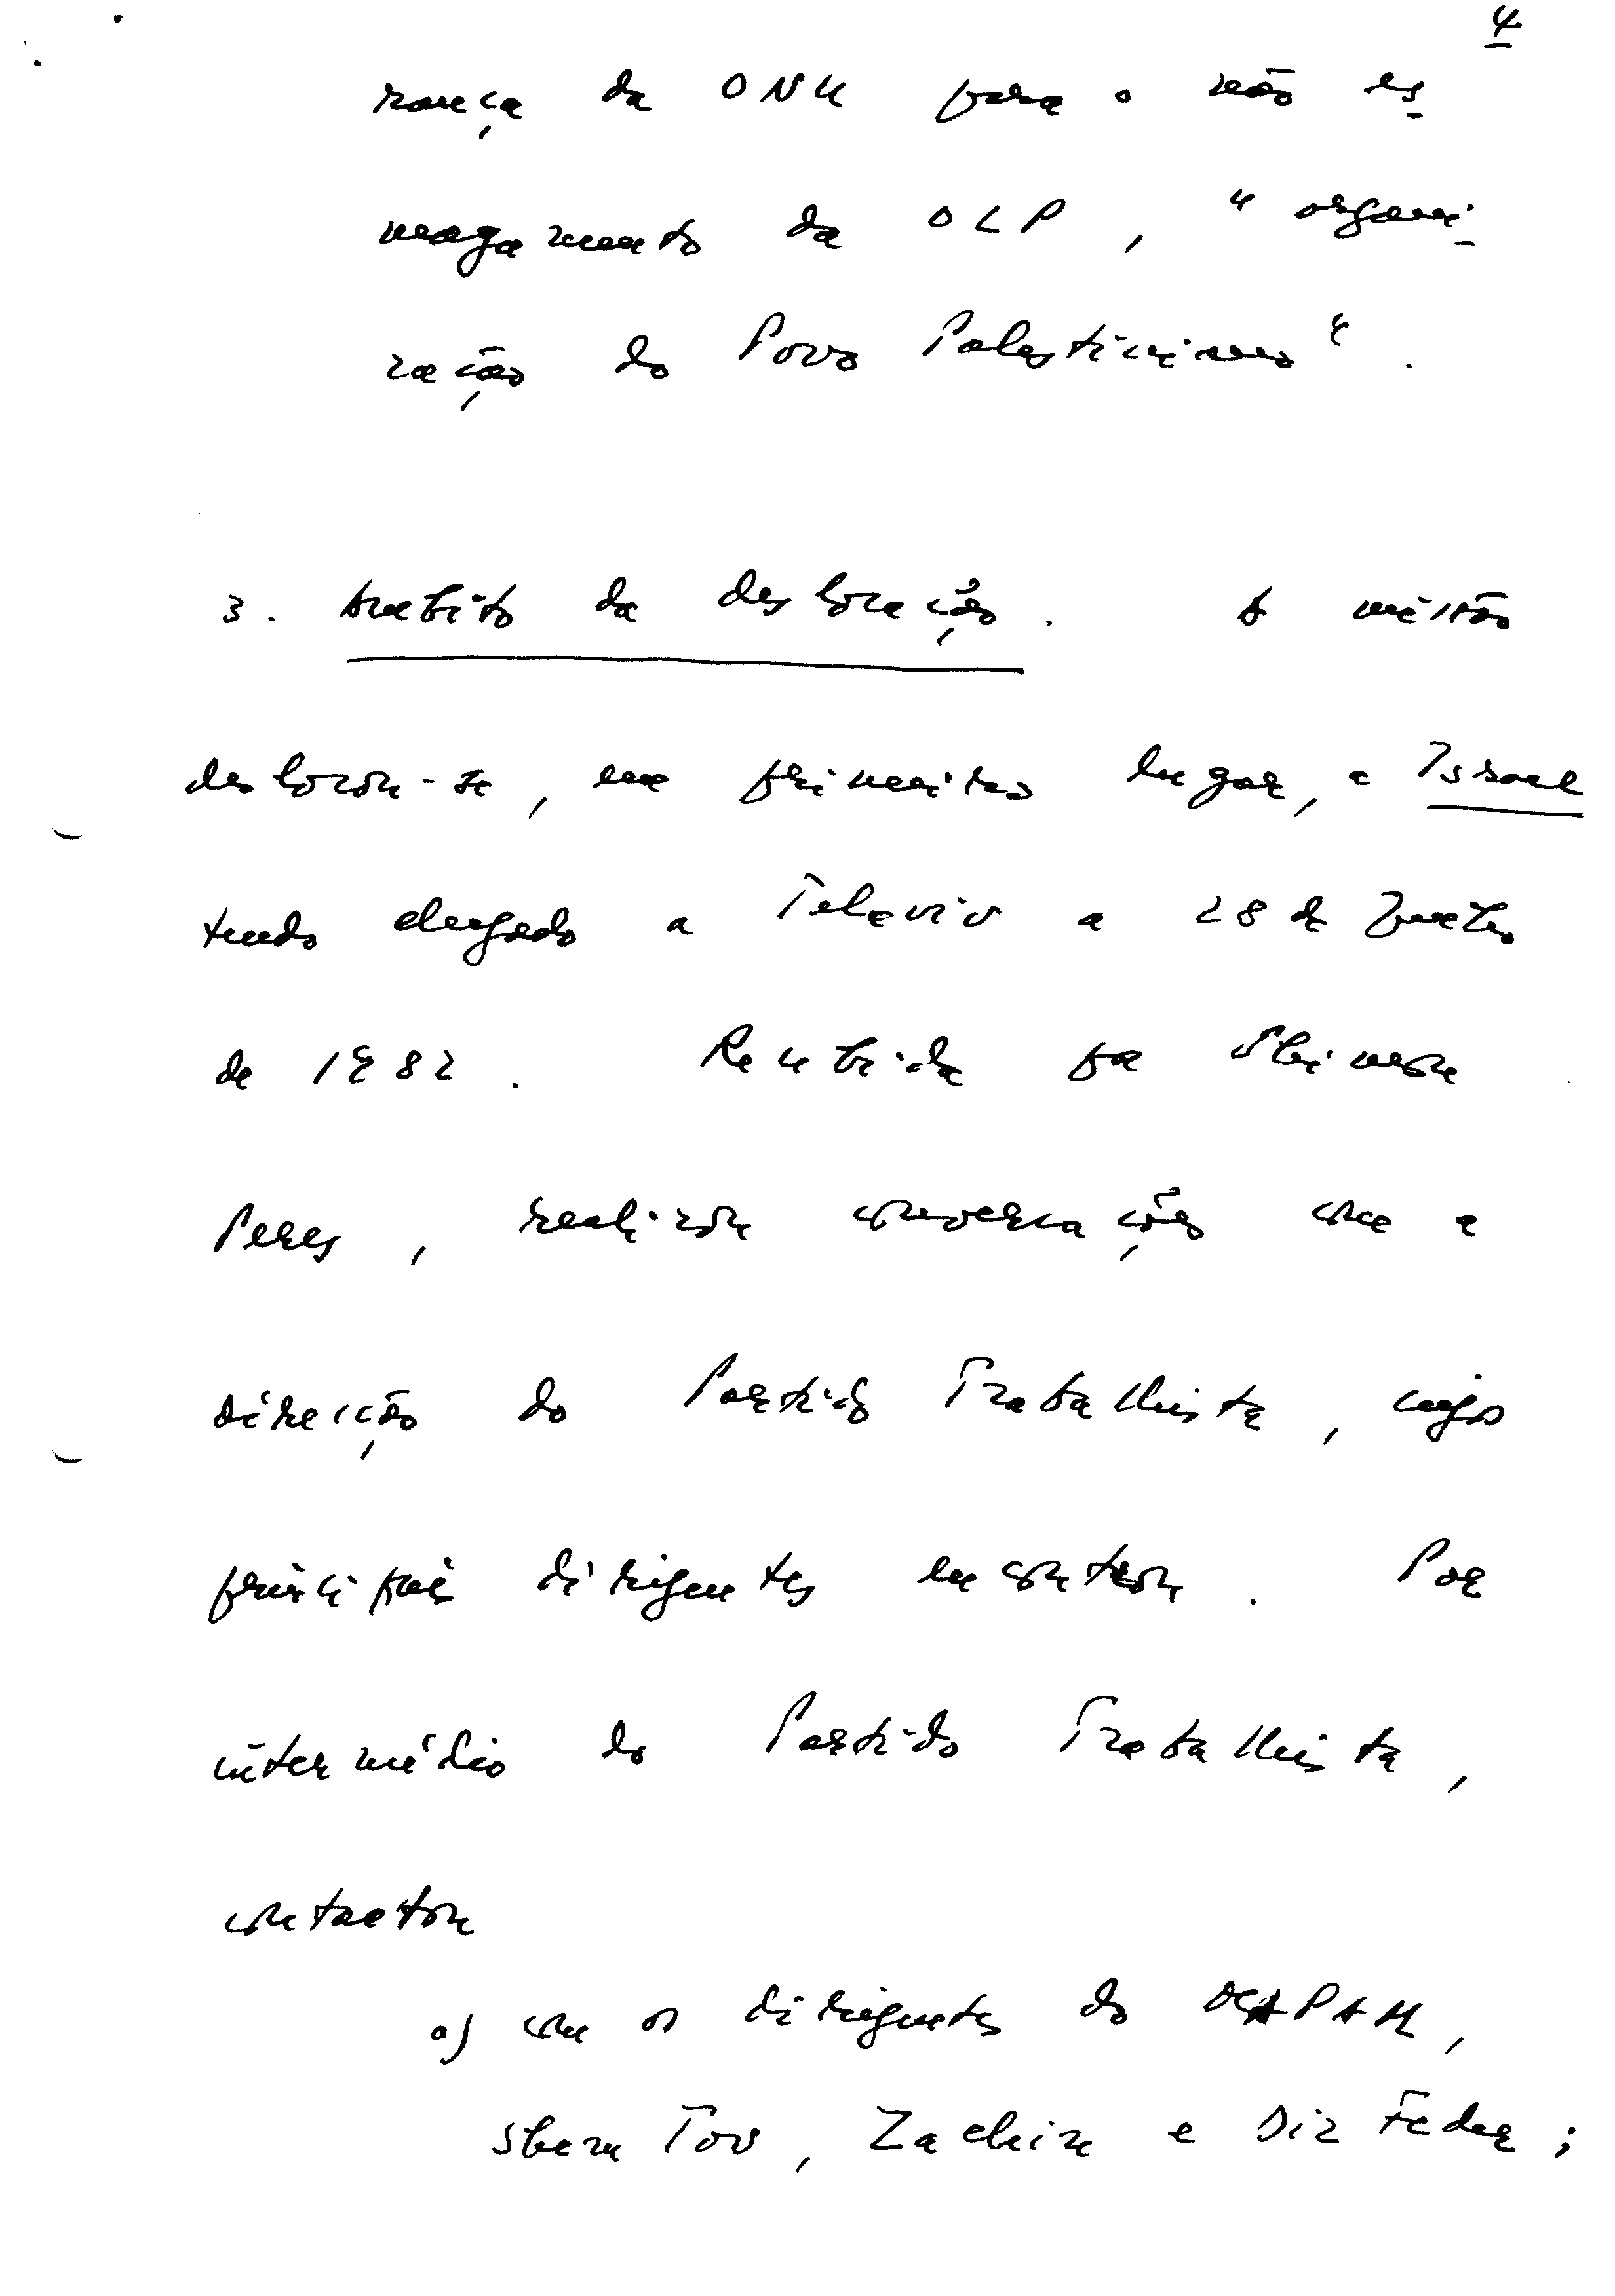 4
rança da ONU para o não es
magamento da OLP, "organi
zação do Povo Palestiniano".
3. Âmbito da deslocação. A missão
deslocou-se, em primeiro lugar, a Israel
tendo chegado a Telaviv a 28 de Junho
de 1982. Recebida por Shimon
Peres, realizou conversações com a
direcção do Partido Trabalhista, cujos
principais dirigentes encontrou. Por
intermédio do Partido Trabalhista,
contactou
a) com os dirigentes do MAPAM,
Shem Tov, Zachin e Siz Feder;